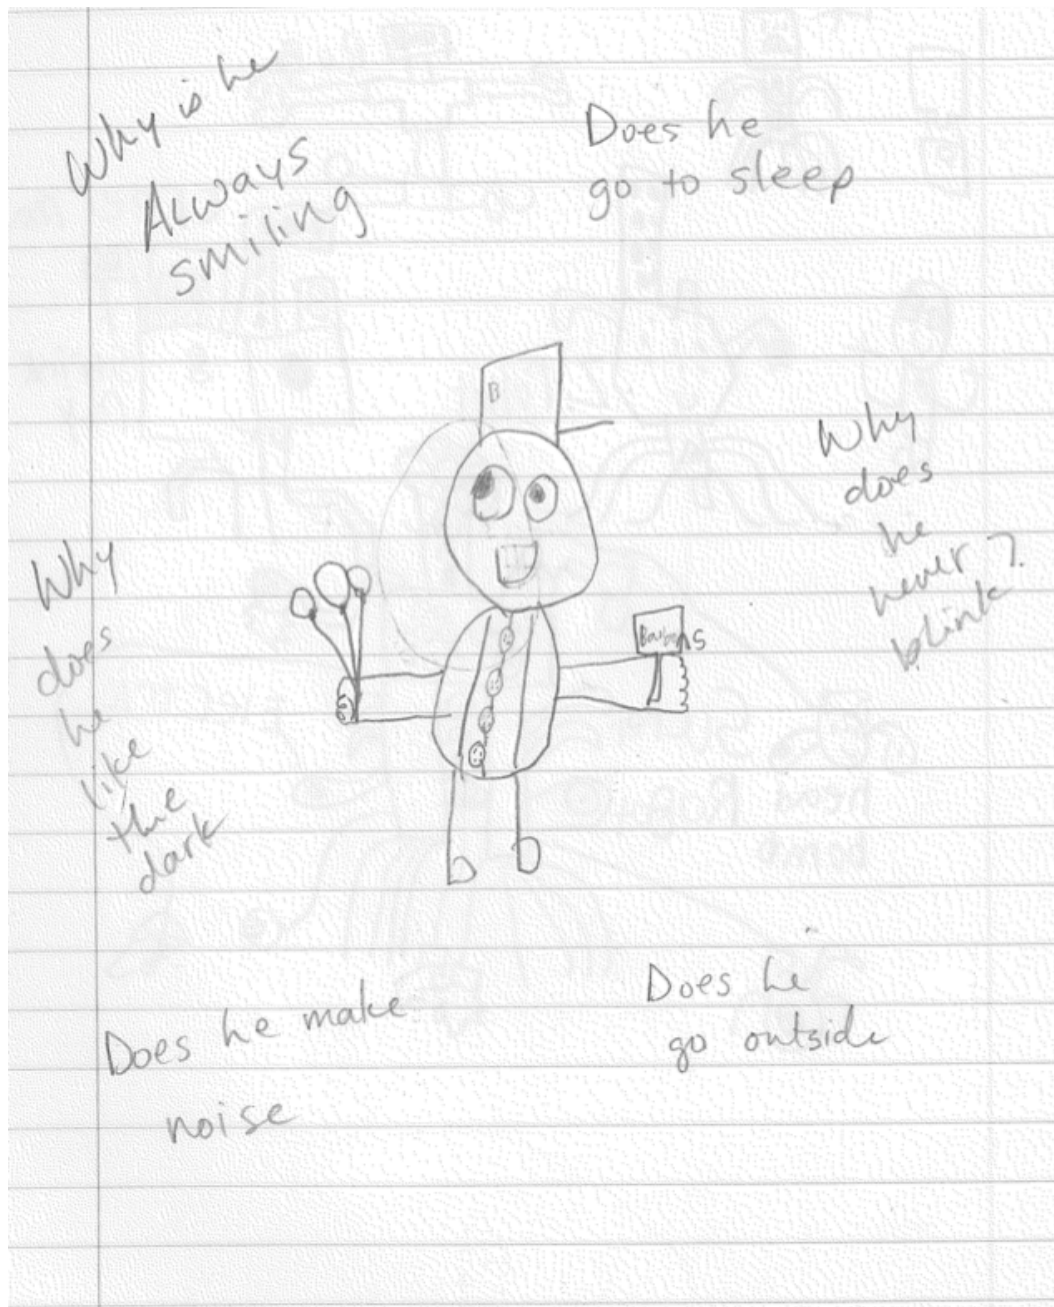 Why is he
Always
smiling
Does he
go to sleep
B
Why
does
he
never
blink?
Why
does
he
like
the
dark
Does he make
noise
Does he
go outside